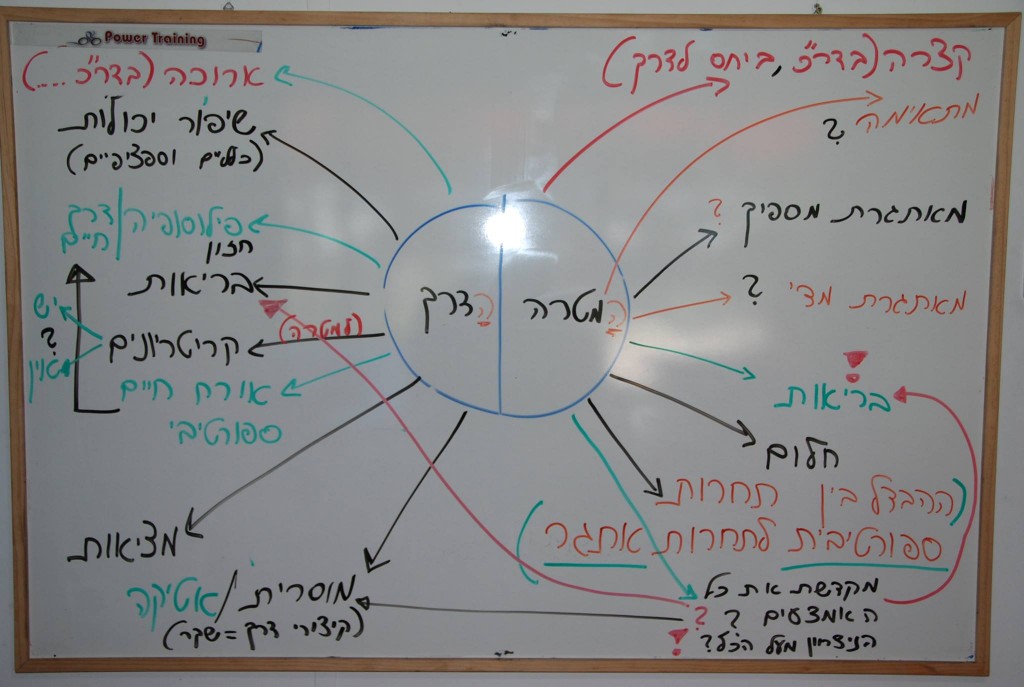 Power Training
קצרה (בדר"כ, ביחס לדרך)
מתאימה?
מאתגרת מספיק?
מאתגרת מדי?
בריאות!
חלום
תחרות (ההבדל בין
ספורטיבית לתחרות אתגר)
מקדשת את כל
האמצעים? ?
הניצחון מעל הכל?!
המטרה
הדרך
ארוכה (בדר"כ....)
שיפור יכולות
(כלליים וספציפיים)
פילוסופיה/דרך
חיים
חזון
בריאות
(למטרה)
קריטריונים
יש
?
אין
אורח חיים
ספורטיבי
מציאות
מוסרית/אטיקה
(קיצורי דרך=שקר)